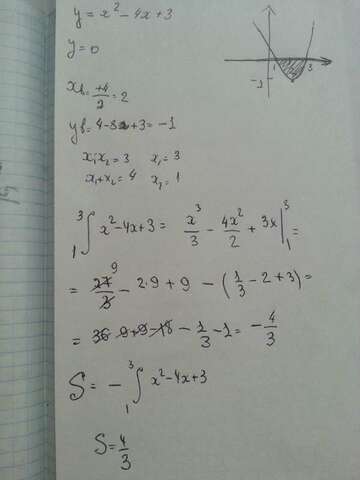 y = x² - 4x + 3
y = 0
xв = +4/2 = 2
yв = 4 - 8 + 3 = -1
x₁x₂ = 3 x₁ = 3
x₁ + x₂ = 4 x₂ = 1
1 3
-1
₁∫³ x² - 4x + 3 = x³/3 - 4x²/2 + 3x |₁³ =
= 27/3 9 - 2·9 + 9 - (1/3 - 2 + 3) =
= 9 + 9 - 18 - 1/3 - 1 = -4/3
S = - ₁∫³ x² - 4x + 3
S = 4/3